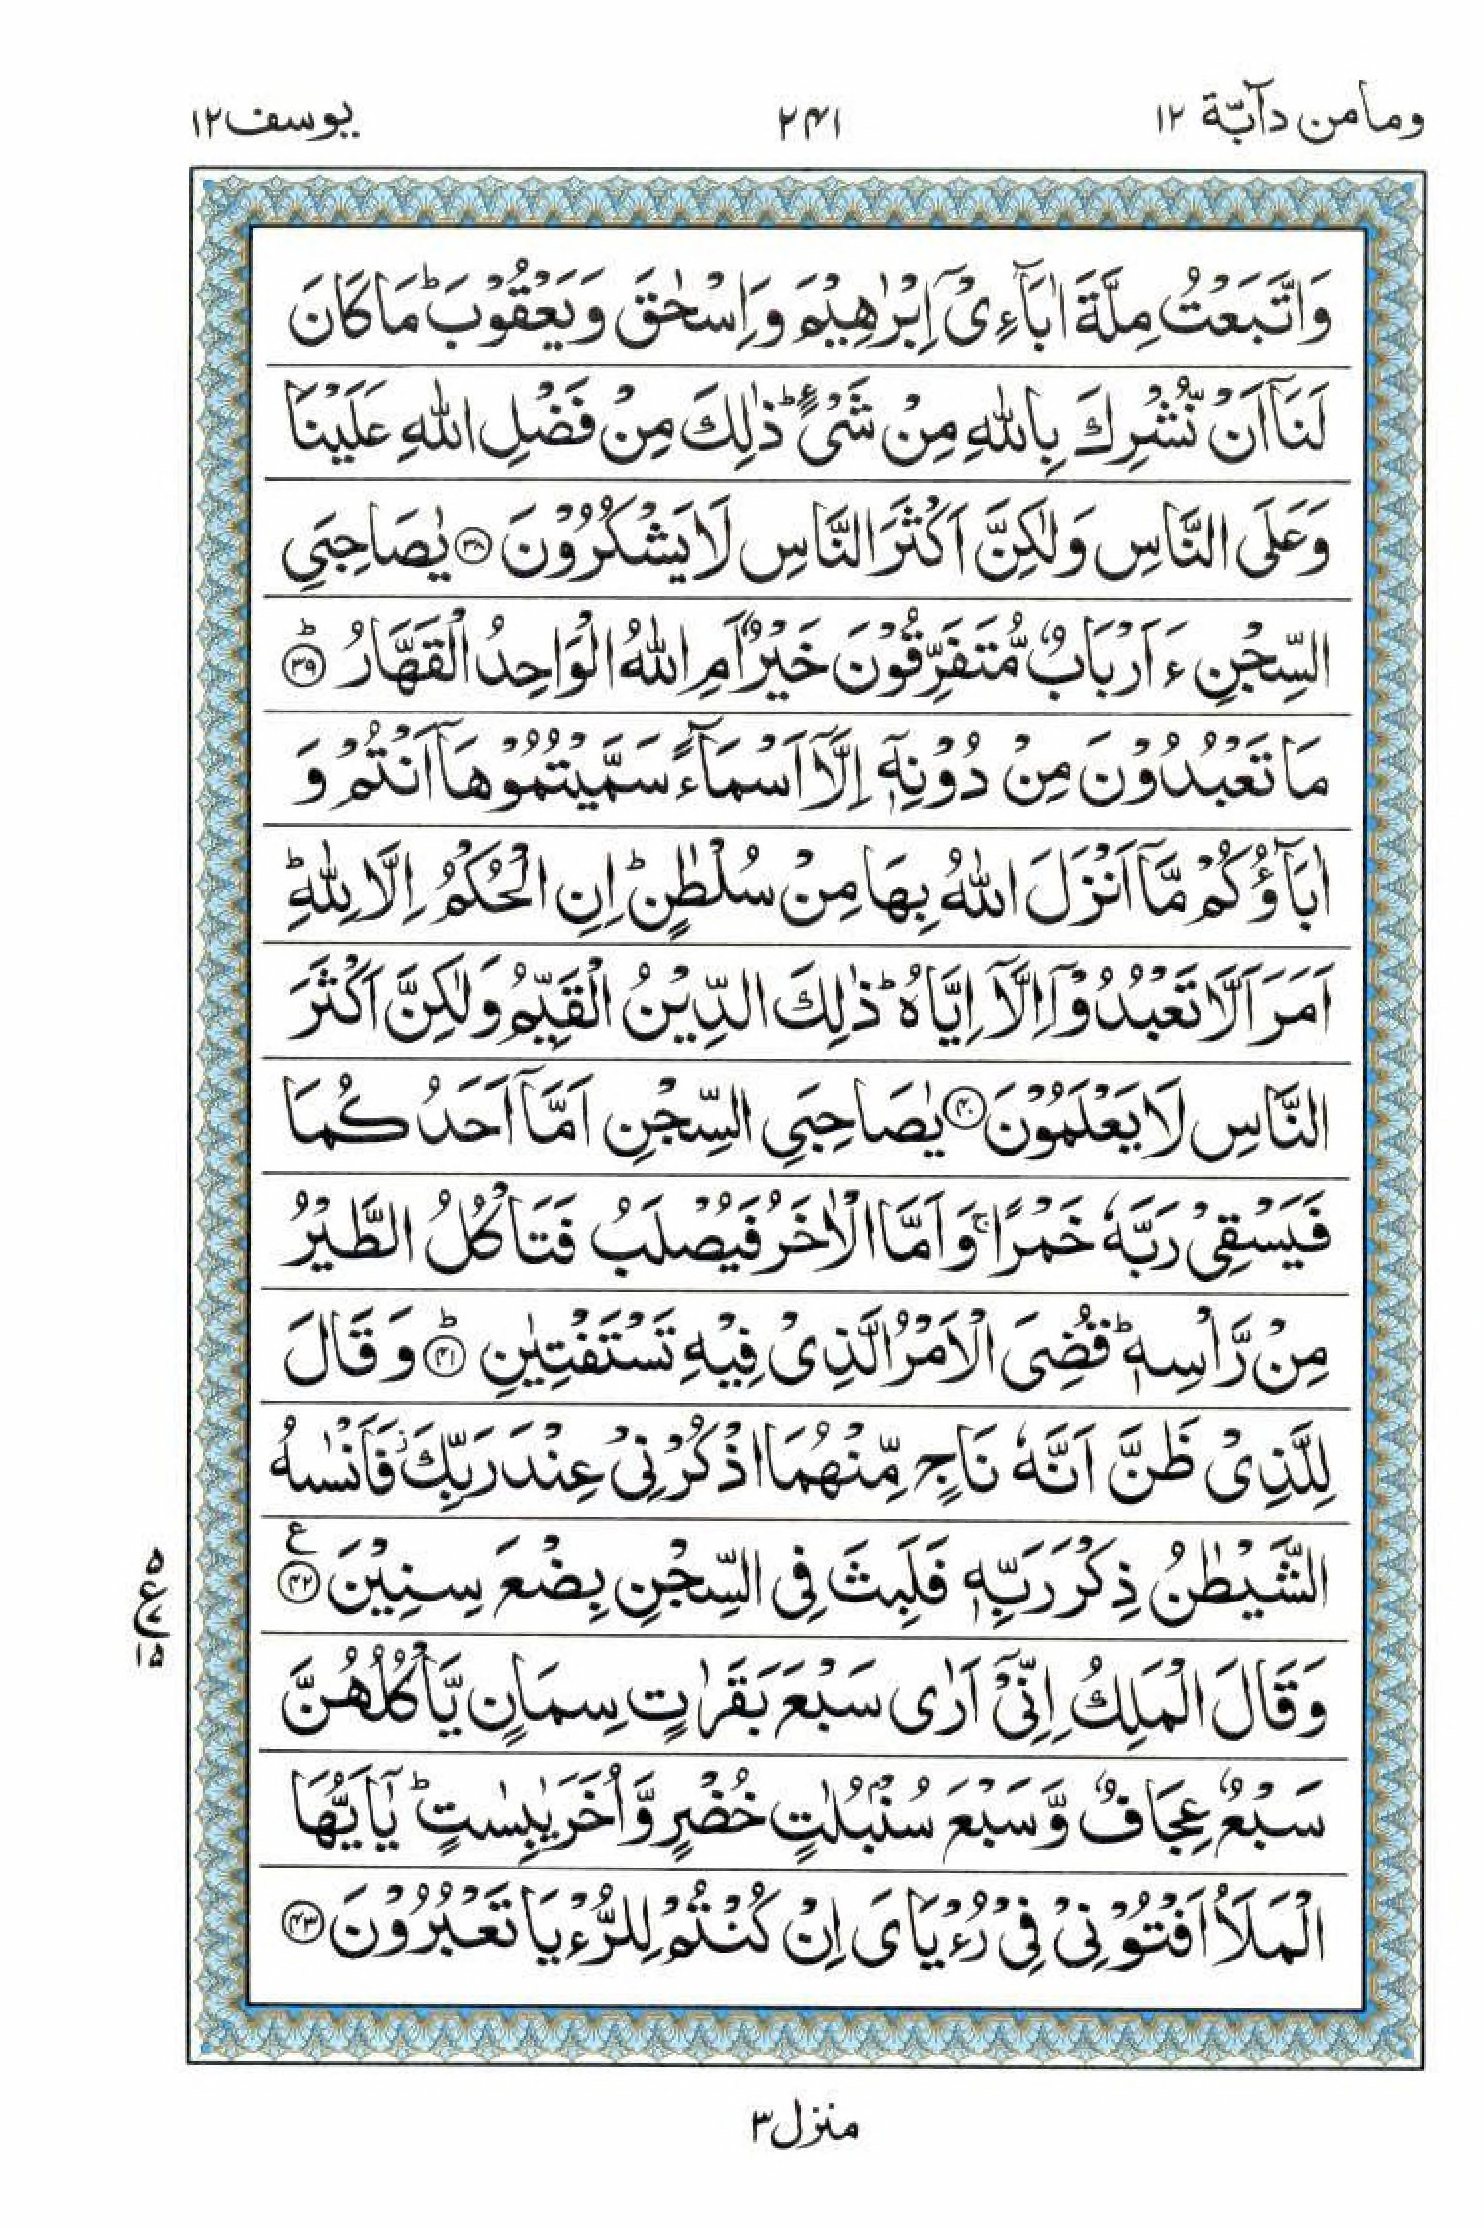 وما من دآبّة ١٢
٢٤١
يوسف ١٢
وَاتَّبَعْتُ مِلَّةَ اٰبَآءِىْٓ اِبْرٰهِيْمَ وَاِسْحٰقَ وَيَعْقُوْبَ ؕ مَا كَانَ
لَنَآ اَنْ نُّشْرِكَ بِاللّٰهِ مِنْ شَىْءٍ ؕ ذٰلِكَ مِنْ فَضْلِ اللّٰهِ عَلَيْنَا
وَعَلَى النَّاسِ وَلٰكِنَّ اَكْثَرَ النَّاسِ لَا يَشْكُرُوْنَ ﴿۳۸﴾ يٰصَاحِبَىِ
السِّجْنِ ءَاَرْبَابٌ مُّتَفَرِّقُوْنَ خَيْرٌ اَمِ اللّٰهُ الْوَاحِدُ الْقَهَّارُ ؕ﴿۳۹﴾
مَا تَعْبُدُوْنَ مِنْ دُوْنِهٖٓ اِلَّآ اَسْمَآءً سَمَّيْتُمُوْهَآ اَنْتُمْ وَ
اٰبَآؤُكُمْ مَّآ اَنْزَلَ اللّٰهُ بِهَا مِنْ سُلْطٰنٍ ؕ اِنِ الْحُكْمُ اِلَّا لِلّٰهِ ؕ
اَمَرَ اَلَّا تَعْبُدُوْٓا اِلَّآ اِيَّاهُ ؕ ذٰلِكَ الدِّيْنُ الْقَيِّمُ وَلٰكِنَّ اَكْثَرَ
النَّاسِ لَا يَعْلَمُوْنَ ﴿۴۰﴾ يٰصَاحِبَىِ السِّجْنِ اَمَّآ اَحَدُكُمَا
فَيَسْقِىْ رَبَّهٗ خَمْرًا ۚ وَاَمَّا الْاٰخَرُ فَيُصْلَبُ فَتَاْكُلُ الطَّيْرُ
مِنْ رَّاْسِهٖ ؕ قُضِىَ الْاَمْرُ الَّذِىْ فِيْهِ تَسْتَفْتِيٰنِ ؕ﴿۴۱﴾ وَقَالَ
لِلَّذِىْ ظَنَّ اَنَّهٗ نَاجٍ مِّنْهُمَا اذْكُرْنِىْ عِنْدَ رَبِّكَ ز فَاَنْسٰىهُ
الشَّيْطٰنُ ذِكْرَ رَبِّهٖ فَلَبِثَ فِى السِّجْنِ بِضْعَ سِنِيْنَ ﴿۴۲﴾ ع
٥ ع ١٥
وَقَالَ الْمَلِكُ اِنِّىْٓ اَرٰى سَبْعَ بَقَرٰتٍ سِمَانٍ يَّاْكُلُهُنَّ
سَبْعٌ عِجَافٌ وَّسَبْعَ سُنْۢبُلٰتٍ خُضْرٍ وَّاُخَرَ يٰبِسٰتٍ ؕ يٰٓاَيُّهَا
الْمَلَاُ اَفْتُوْنِىْ فِىْ رُءْيَاىَ اِنْ كُنْتُمْ لِلرُّءْيَا تَعْبُرُوْنَ ﴿۴۳﴾
منزل ٣